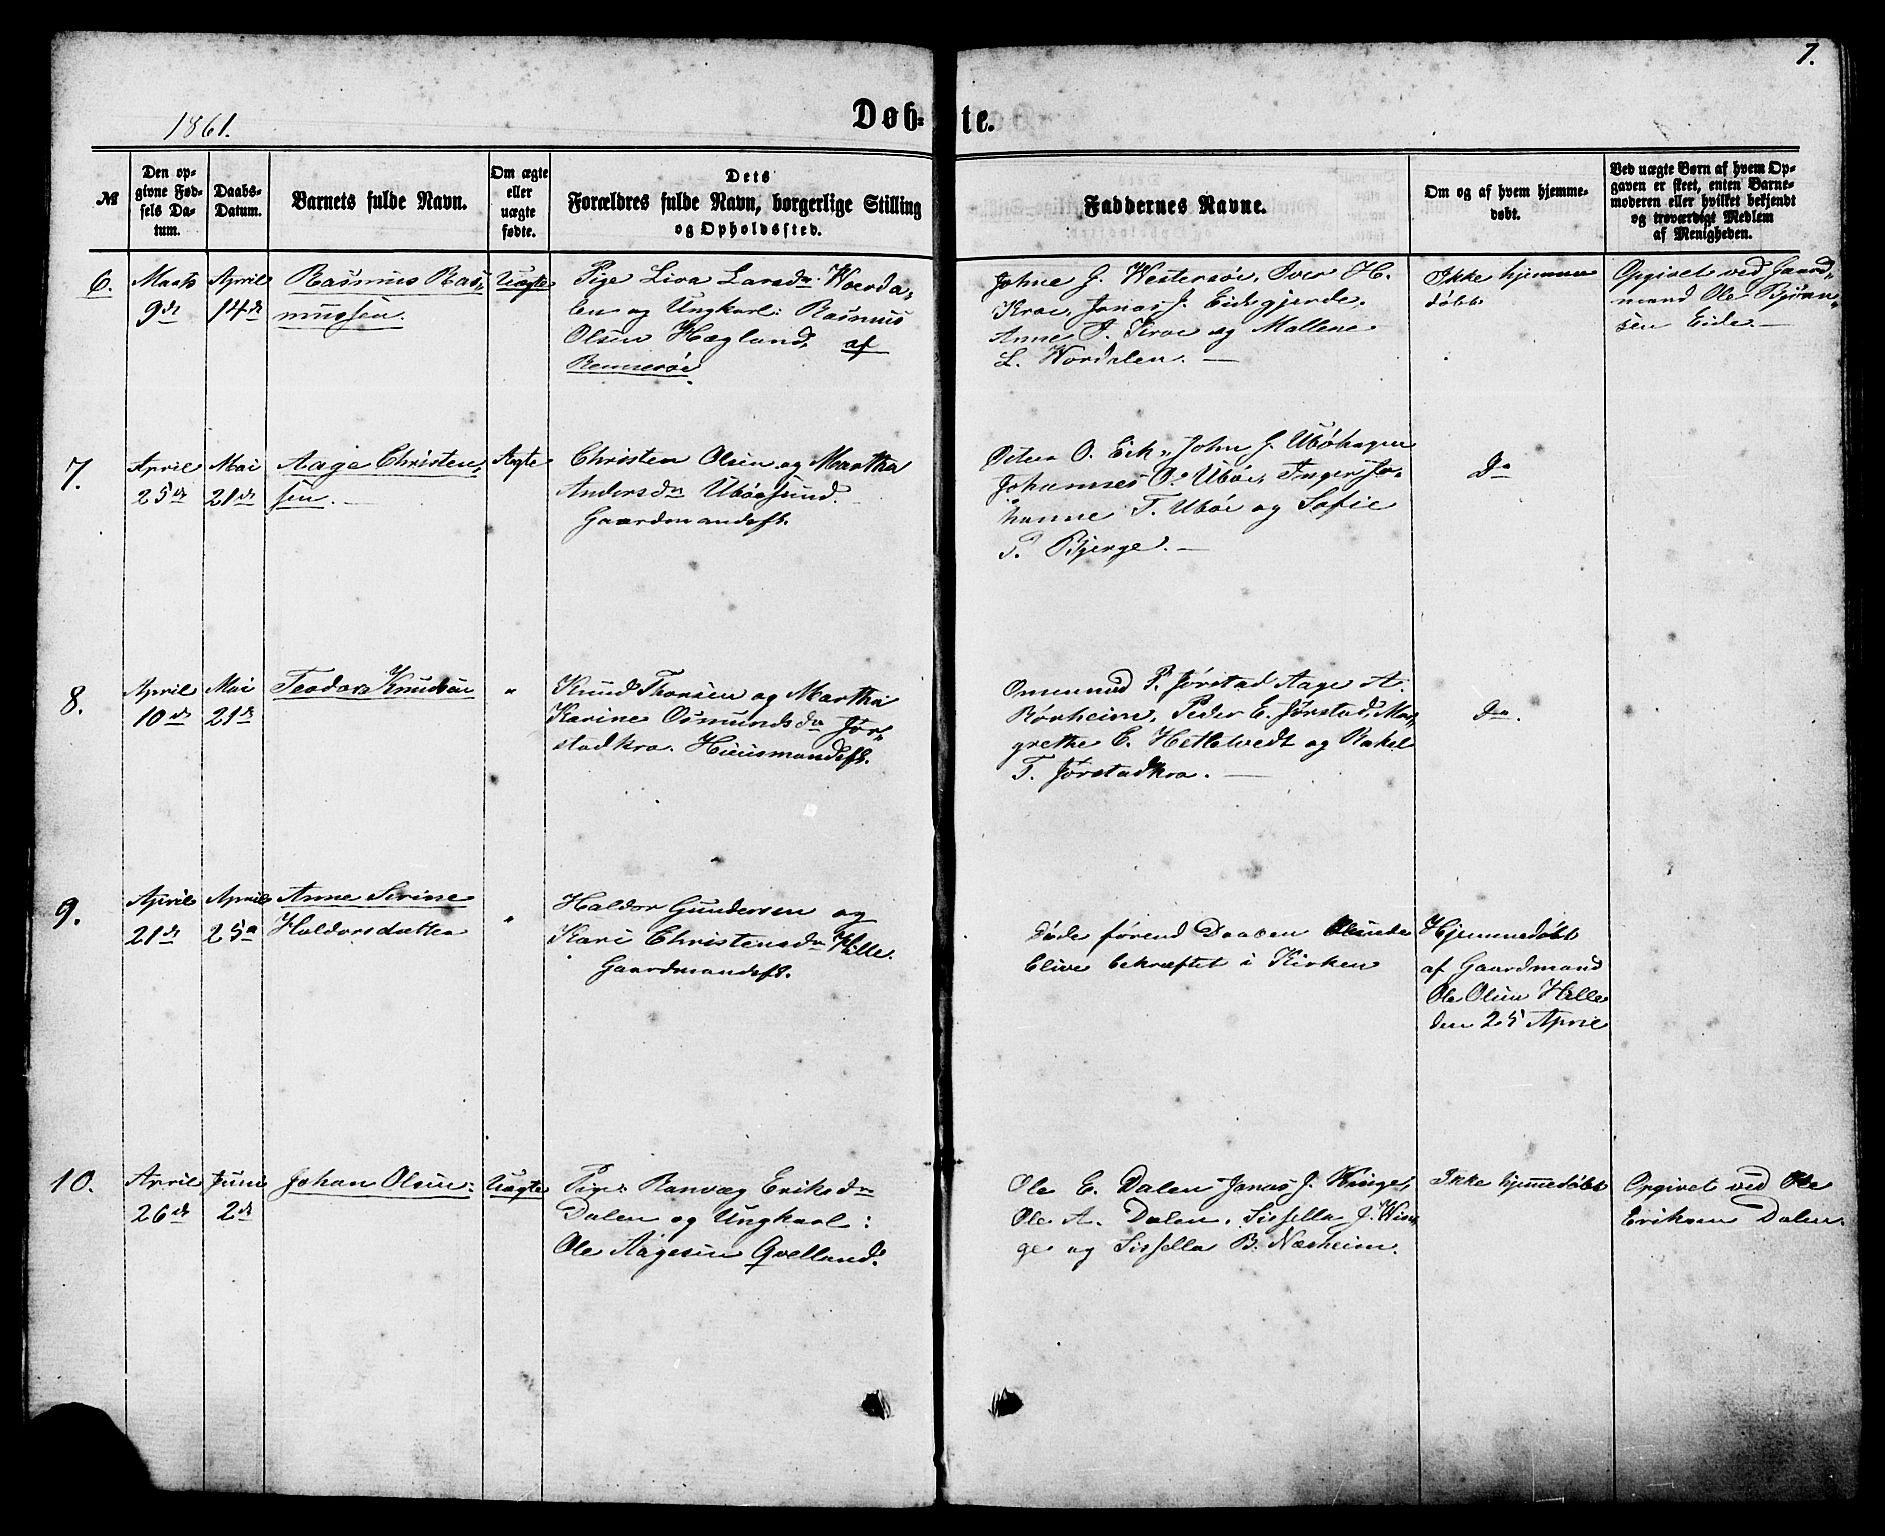 7.
1861.
Døb-
te.
№
Den op-
givne Fød-
sels Da-
tum.
Daabs-
Datum.
Barnets fulde Navn.
Om ægte
eller
uægte
fødte.
Dets
Forældres fulde Navn, borgerlige Stilling
og Opholdssted.
Faddernes Navne.
Om og af hvem hjemme-
døbt.
Ved uægte Børn af hvem Op-
gaven er skeet, enten Barne-
moderen eller hvilket bekjendt
og troværdigt Medlem
af Menigheden.
6.
Marts
9de
April
14de
Rasmus Ras-
mussen.
Uægte
Pige Liva Larsdr. Woerda-
len og Ungkarl: Rasmus
Olsen Hægland, af
Rennesøe
Johne G. Westersøe, Iver H.
Kroe, Jonas J. Eidsgjerde,
Anne I. Kroe og Mallene
L. Wordalen. —
Ikke hjemme
døbt
Opgivet ved Gaard-
mand Ole Bjørn-
sen Eide. —
7.
April
25de
Mai
21de
Aage Christen-
sen. —
Ægte
Christen Olsen og Martha
Andersdr Ubøesund. —
Gaardmandsf.
Peter O. Eik, John G. Ubøhagen
Johannes O. Ubøe, Inger Jo-
hanne T. Ubøe og Sofie
T. Bjerge. —
Do
8.
April
10de
Mai
21de
Teodor Knudsen
"
Knud Thorsen og Martha
Karine Osmundsdr Jør-
stadkra. Huusmandsf.
Osmund P. Jørstad, Aage A.
Rørheim, Peder E. Jørstad, Mar-
grethe E. Hetletvedt og Rakel
T. Jørstadkra. —
Do.
9.
April
21de
April
25de
Anne Serine
Haldorsdatter
"
Haldor Gundersen og
Kari Christensdr Helle.
Gaardmandsf.
døde førend Daaben kunde
blive bekræftet i Kirken
Hjemmedøbt
af Gaardmand
Ole Olsen Helle
den 25 April
10.
April
26de
Juni
2de
Johan Olsen.
Uægte
Pige: Ranvæg Eriksdr
Dalen og Ungkarl:
Ole Aagesen Qvelland.
Ole E. Dalen, Jonas J. Winge,
Ole A. Dalen, Sissella J. Win-
ge og Sissella B. Næsheim.
Ikke hjemmedøbt
Opgivet ved Ole
Eriksen Dalen.